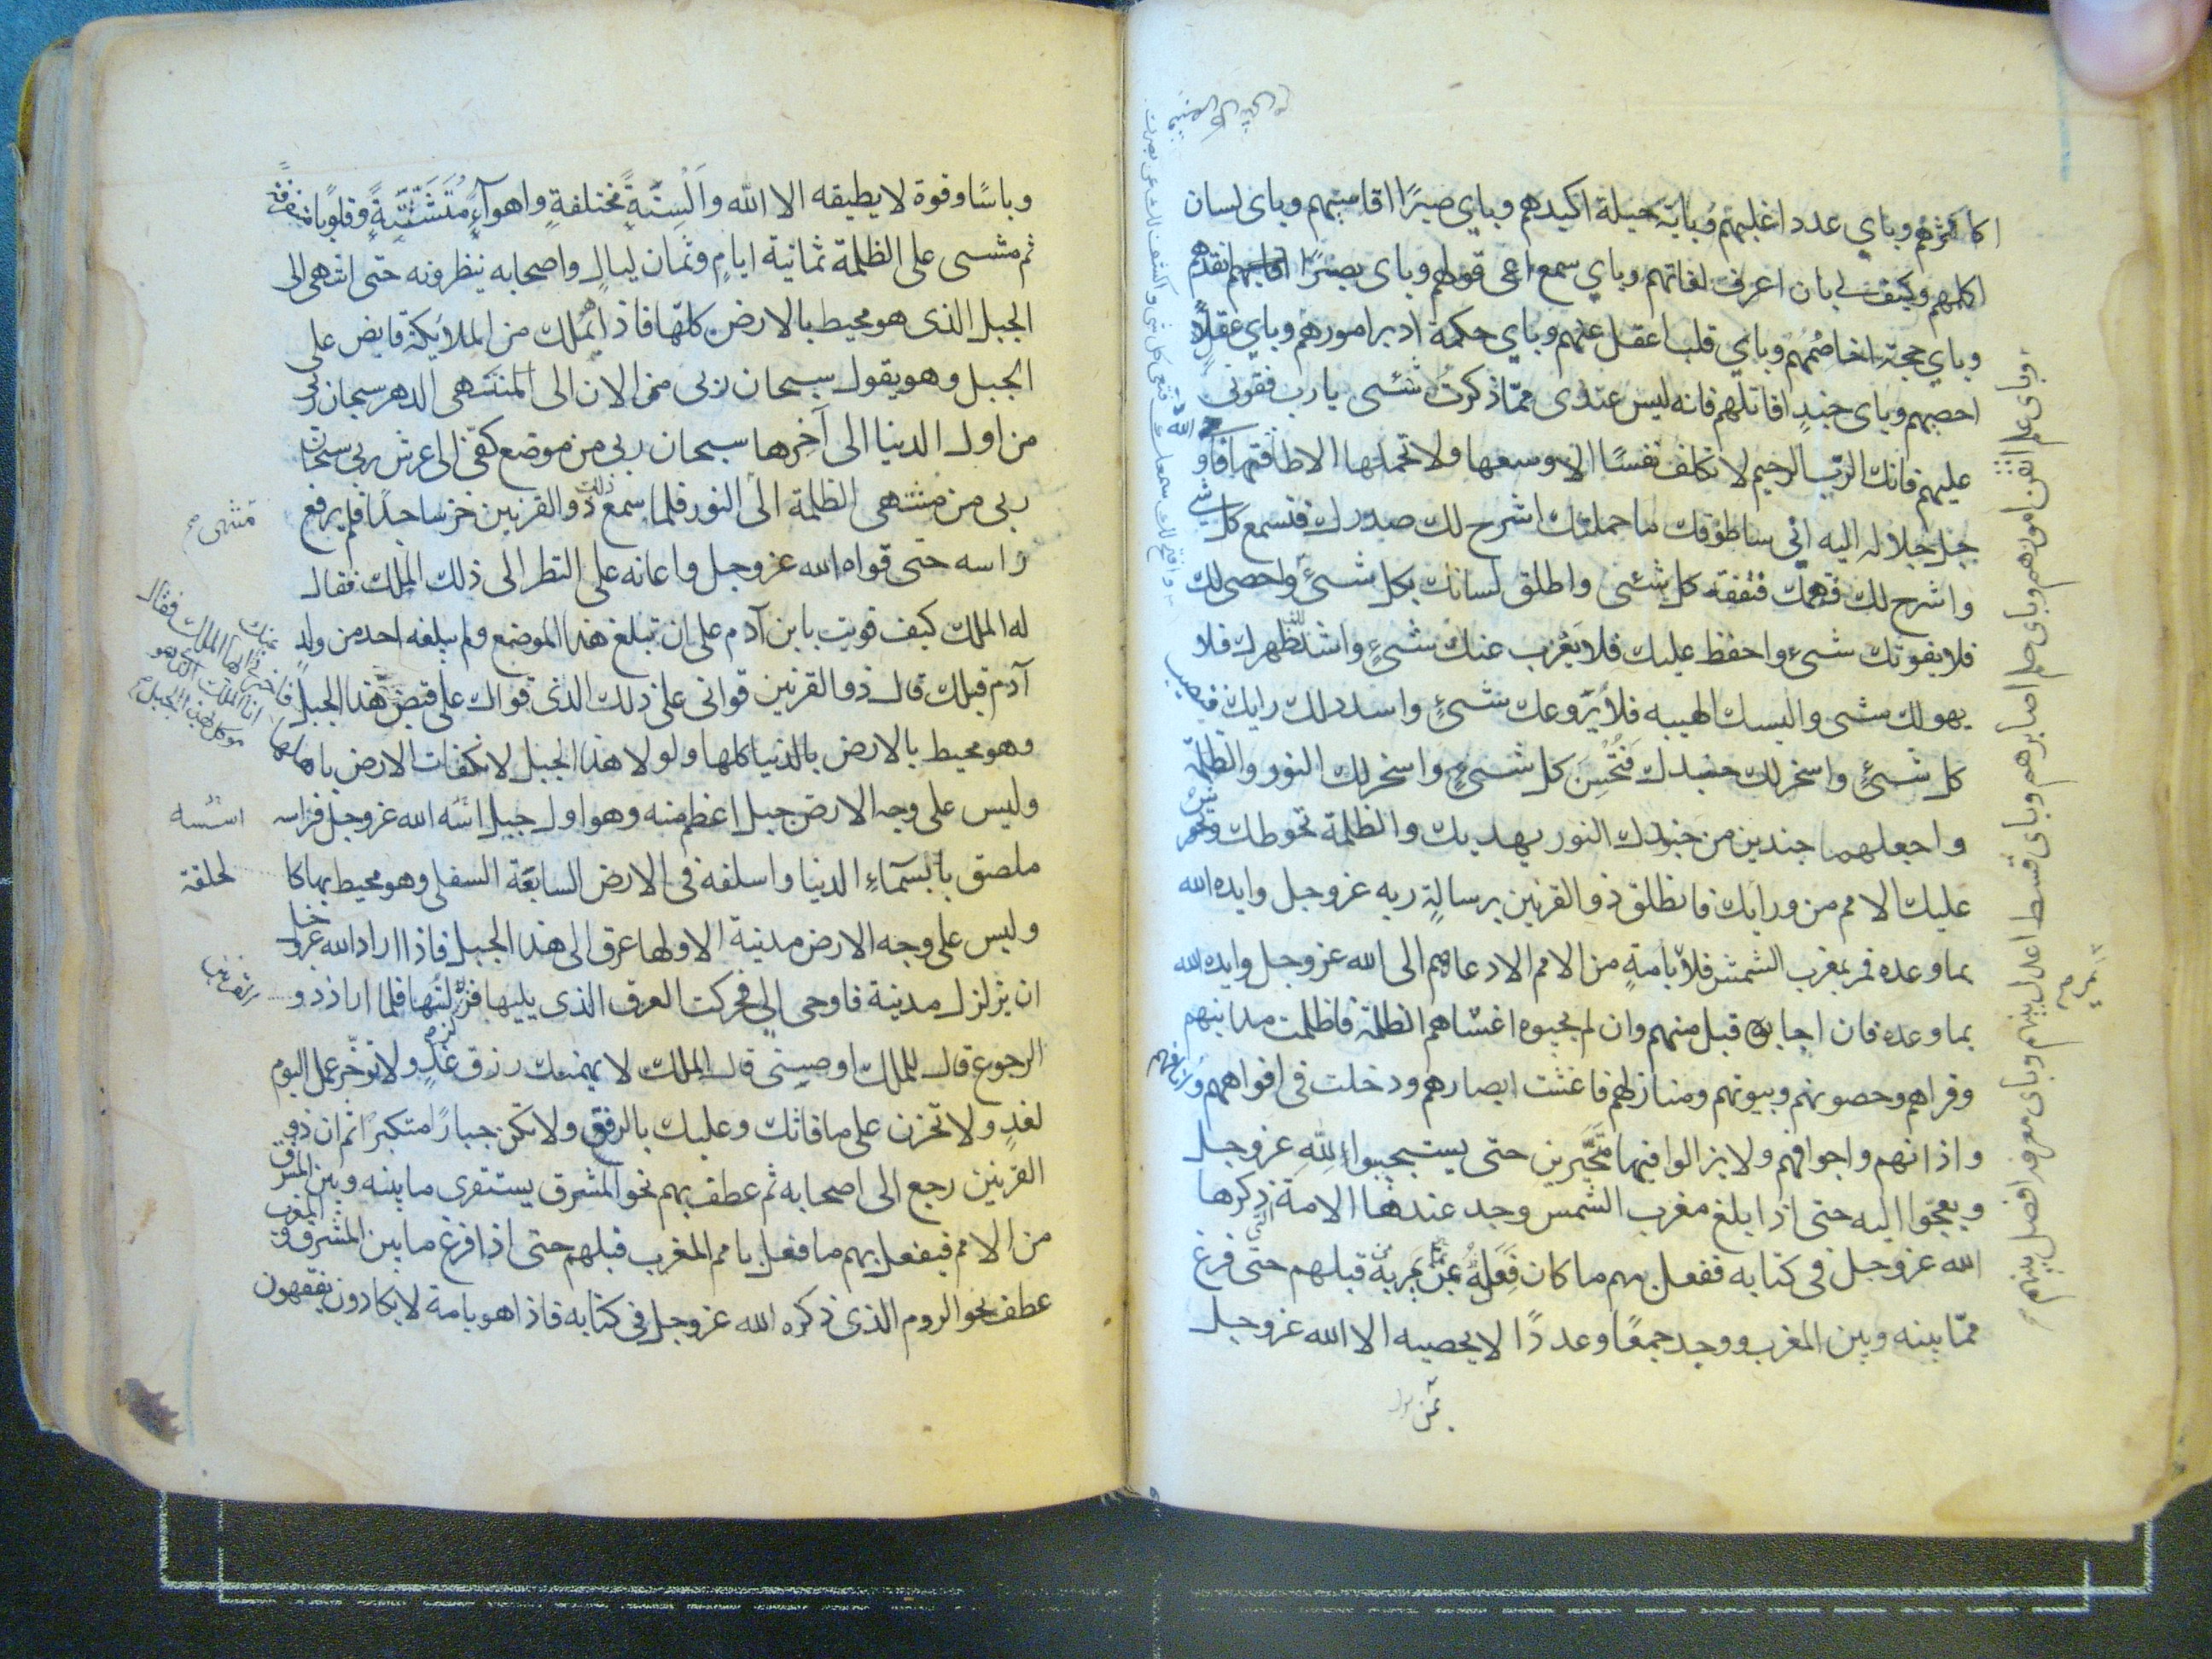 اكاثرهم وباي عدد اغلبهم وباية حيلة اكيدهم وباي صبرًا اقاسيهم وباى لسان
اكلمهم وكيف لى بان اعرف لغاتهم وباي سمع اعى قولهم وباى بصرًا انقدهم
وباي حجة اخاصمهم وباي قلب اعقل عنهم وباي حكمة ادبر امورهم وباي عقلًا
احصيهم وباى جندٍ اقاتلهم فانه ليس عندى ممّا ذكرتُ شئى يارب فقونى
عليهم فانك الربّ الرحيم لا تكلف نفسًا الا وسعها ولا تحملها الا طاقتها
جل جلاله اليه انّى ساطوقك ما حملتك اشرح لك صدرك فتسمع كل
واشرح لك فهمك فتفقه كل شئى واطلق لسانك بكل شئ واحصى لك
فلا يفوتك شئ واحفظ عليك فلا يعزب عنك شئٍ واشد ظهرك فلا
يهولك شى والبسك الهيبه فلا يروعك شئٍ واسدد لك رايك فيصيب
كل شئٍ واسخر لك جندك فتحسن كل شئٍ واسخر لك النور والظلمة
واجعلهما جندين من جنودك النور يهديك والظلمة تحوطك وتحوش
عليك الامم من ورايك فانطلق ذو القرنين برسالة ربه عزوجل وايده الله
بما وعده فمر بمغرب الشمس فلا بامةٍ من الامم الا دعاهم الى الله عزوجل وايده الله
بما وعده فان اجابوه قبل منهم وان لم يجيبوه اغشاهم الظلمة فاظلمت مداينهم
وقراهم وحصونهم وبيوتهم ومنازلهم فاغشت ابصارهم ودخلت فى افواههم وانافهم
واذانهم واجوافهم ولا يزالوا فيها متحيرين حتى يستجيبوا لله عزوجل
ويعجوا اليه حتى اذا بلغ مغرب الشمس وجد عندها الامة التى ذكرها
الله عزوجل فى كتابه ففعل بهم ما كان فعله بمن مر به قبلهم حتى فرغ
ممّا بينه وبين المغرب ووجد جمعًا وعددًا لا يحصيه الا الله عزوجل
وباى علم اتقن امورهم وباى حلم اصابرهم وباى قسط اعدل بينهم وباى معرفة افصل بينهم
وباسًا وقوة لا يطيقه الا الله والسنةً مختلفةٍ واهواءٍ متشتتةٍ وقلوبًا متفرقة
ثم مشى على الظلمة ثمانية ايامٍ وثمان ليالٍ واصحابه ينظرونه حتى انتهى الى
الجبل الذى هو محيط بالارض كلها فاذا بملك من الملايكة قابض على
الجبل وهو يقول سبحان ربى من الان الى المنتهى الدهر سبحان ربى
من اول الدنيا الى آخرها سبحان ربى من موضع كفّى الى عرش ربى سبحان
ربى من منتهى الظلمة الى النور فلما سمع ذلك ذوالقرنين خرّ ساجدًا فلم يرفع
راسه حتى قواه الله عزوجل واعانه على النظر الى ذلك الملك فقال
له الملك كيف قويت يابن آدم على ان تبلغ هذا الموضع ولم يبلغه احد من ولد
آدم قبلك قال ذو القرنين قوانى على ذلك الذى قواك على قبض هذا الجبل
وهو محيط بالارض بالدنيا كلها ولولا هذا الجبل لانكفات الارض باهلها
وليس على وجه الارض جبل اعظم منه وهو اول جبل اسّسه الله عزوجل فراسه
ملصق بالسمآءِ الدنيا واسفله فى الارض السابعة السفلى وهو محيط بها كا
لحلقة
وليس على وجه الارض مدينة الا ولها عرق الى هذا الجبل فاذا اراد الله عزوجل
ان يزلزل مدينة فاوحى الى فحركت العرق الذى يليها فزلزلتُها فلما اراد ذو
القرنين
الرجوع قال للملك اوصينى قال الملك لا يهمنك رزق غدٍ ولا توخّر عمل اليوم
لغدٍ ولا تحزن على ما فاتك وعليك بالرفق ولا تكن جبارًا متكبرًا ثم ان ذو
القرنين رجع الى اصحابه ثم عطف بهم نحو المشرق يستقرى ما بينه وبين المشرق
من الامم فيفعل بهم ما فعل بامم المغرب قبلهم حتى اذا فرغ ما بين المشرق والمغرب
عطف نحو الروم الذى ذكره الله عزوجل فى كتابه فاذا هو بامة لا يكادون يفقهون
منتهى
فاخبرنى عنك ايها الملك فقال
انا الملك الذى هو
موكل بهذا الجبل
اسّسه